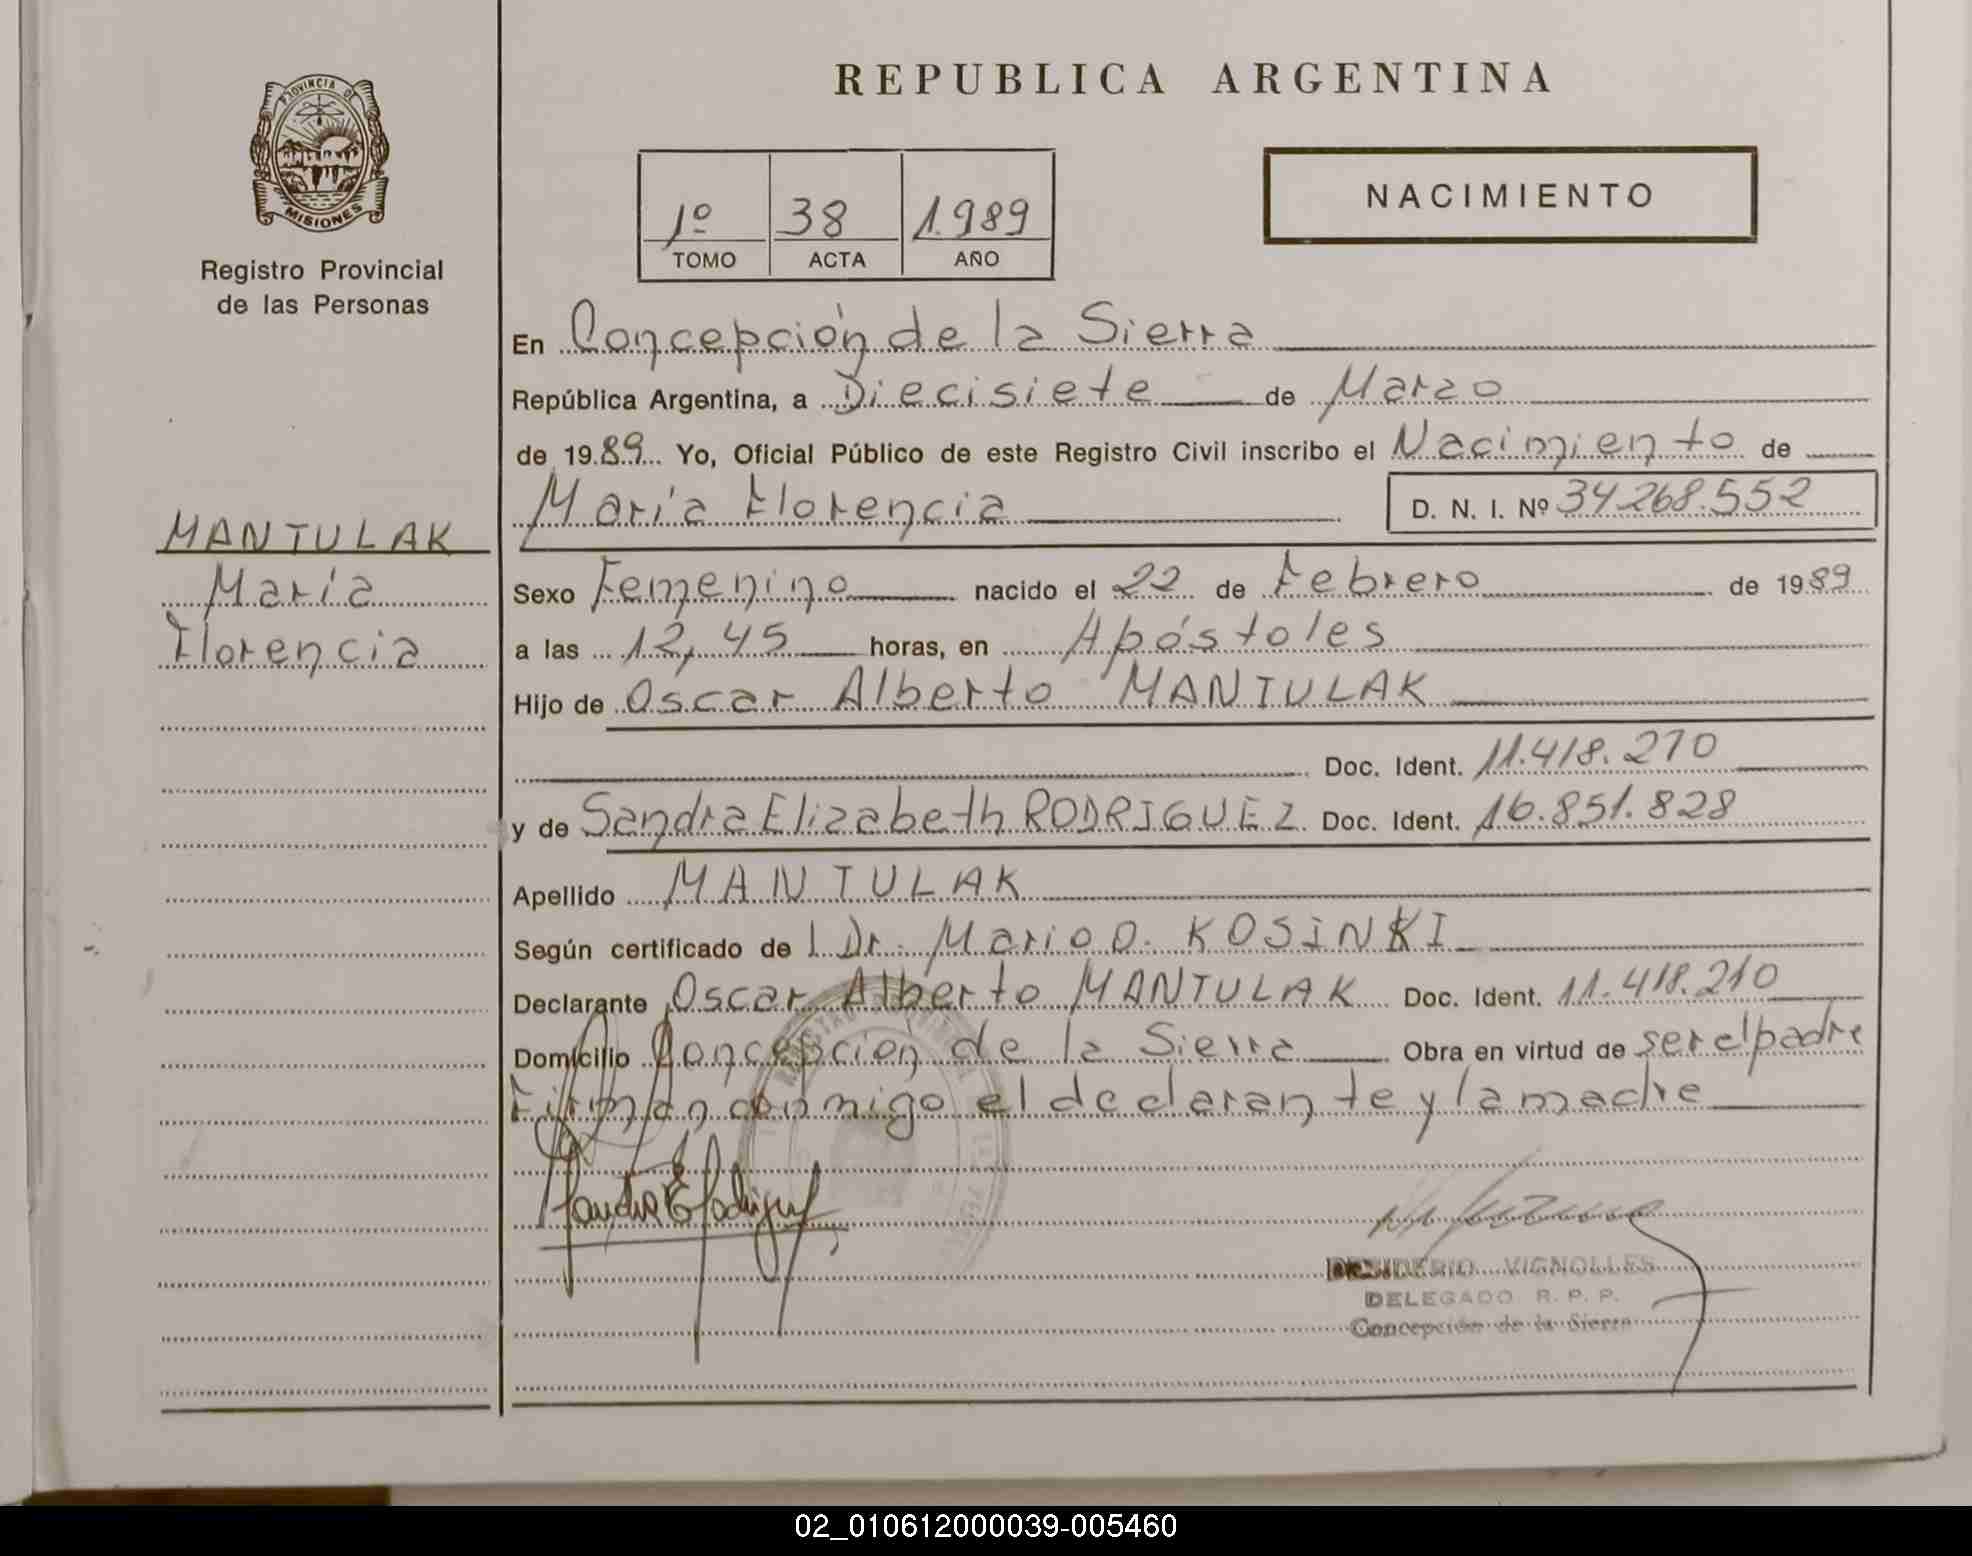 PROVINCIA DE
MISIONES
Registro Provincial
de las Personas
MANTULAK
María
Florencia
REPUBLICA ARGENTINA
1º 38 1.989
TOMO ACTA AÑO
NACIMIENTO
En Concepción de la Sierra
República Argentina, a Diecisiete de Marzo
de 1989 Yo, Oficial Público de este Registro Civil inscribo el Nacimiento de
María Florencia D. N. I. Nº 34.268.552
Sexo Femenino nacido el 22 de Febrero de 1989
a las 12,45 horas, en Apóstoles
Hijo de Oscar Alberto MANTULAK
Doc. Ident. 11.418.210
y de Sandra Elizabeth RODRIGUEZ Doc. Ident. 16.851.828
Apellido MANTULAK
Según certificado de l Dr. Mario O. KOSINKI
Declarante Oscar Alberto MANTULAK Doc. Ident. 11.418.210
Domicilio Concepcion de la Sierra Obra en virtud de ser el padre
Firman conmigo el declarante y la madre
Sandra E Rodriguez
DESIDERIO VIGNOLLES
DELEGADO R. P. P.
Concepción de la Sierra
02_010612000039-005460